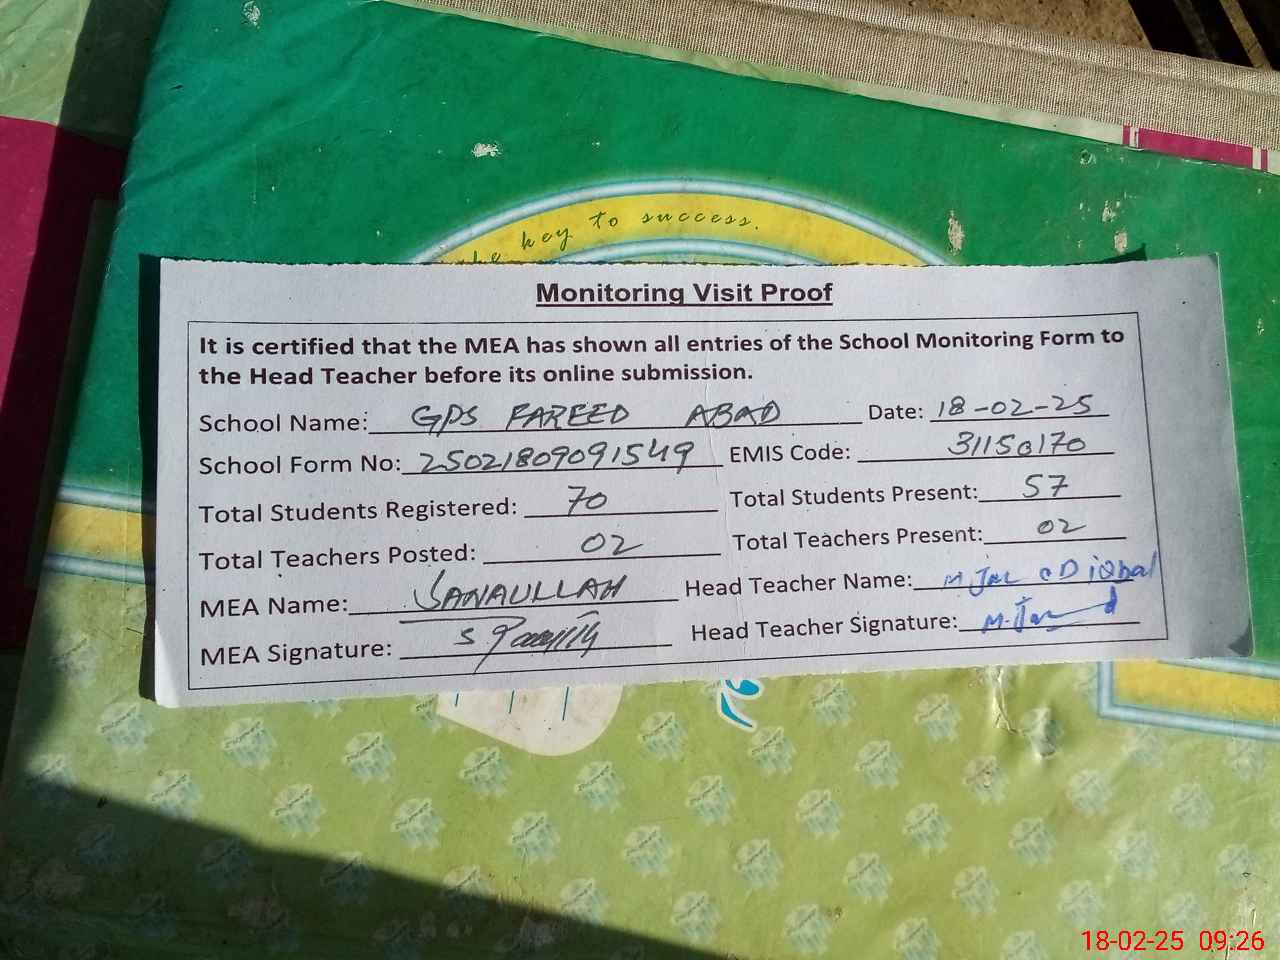 key to success.
Monitoring Visit Proof
It is certified that the MEA has shown all entries of the School Monitoring Form to
the Head Teacher before its online submission.
School Name: GPS FAREED ABAD Date: 18-02-25
School Form No: 25021809091549 EMIS Code: 31150170
Total Students Registered: 70 Total Students Present: 57
Total Teachers Posted: 02 Total Teachers Present: 02
MEA Name: SANAULLAH Head Teacher Name: M iqbal
MEA Signature: Head Teacher Signature:
18-02-25 09:26